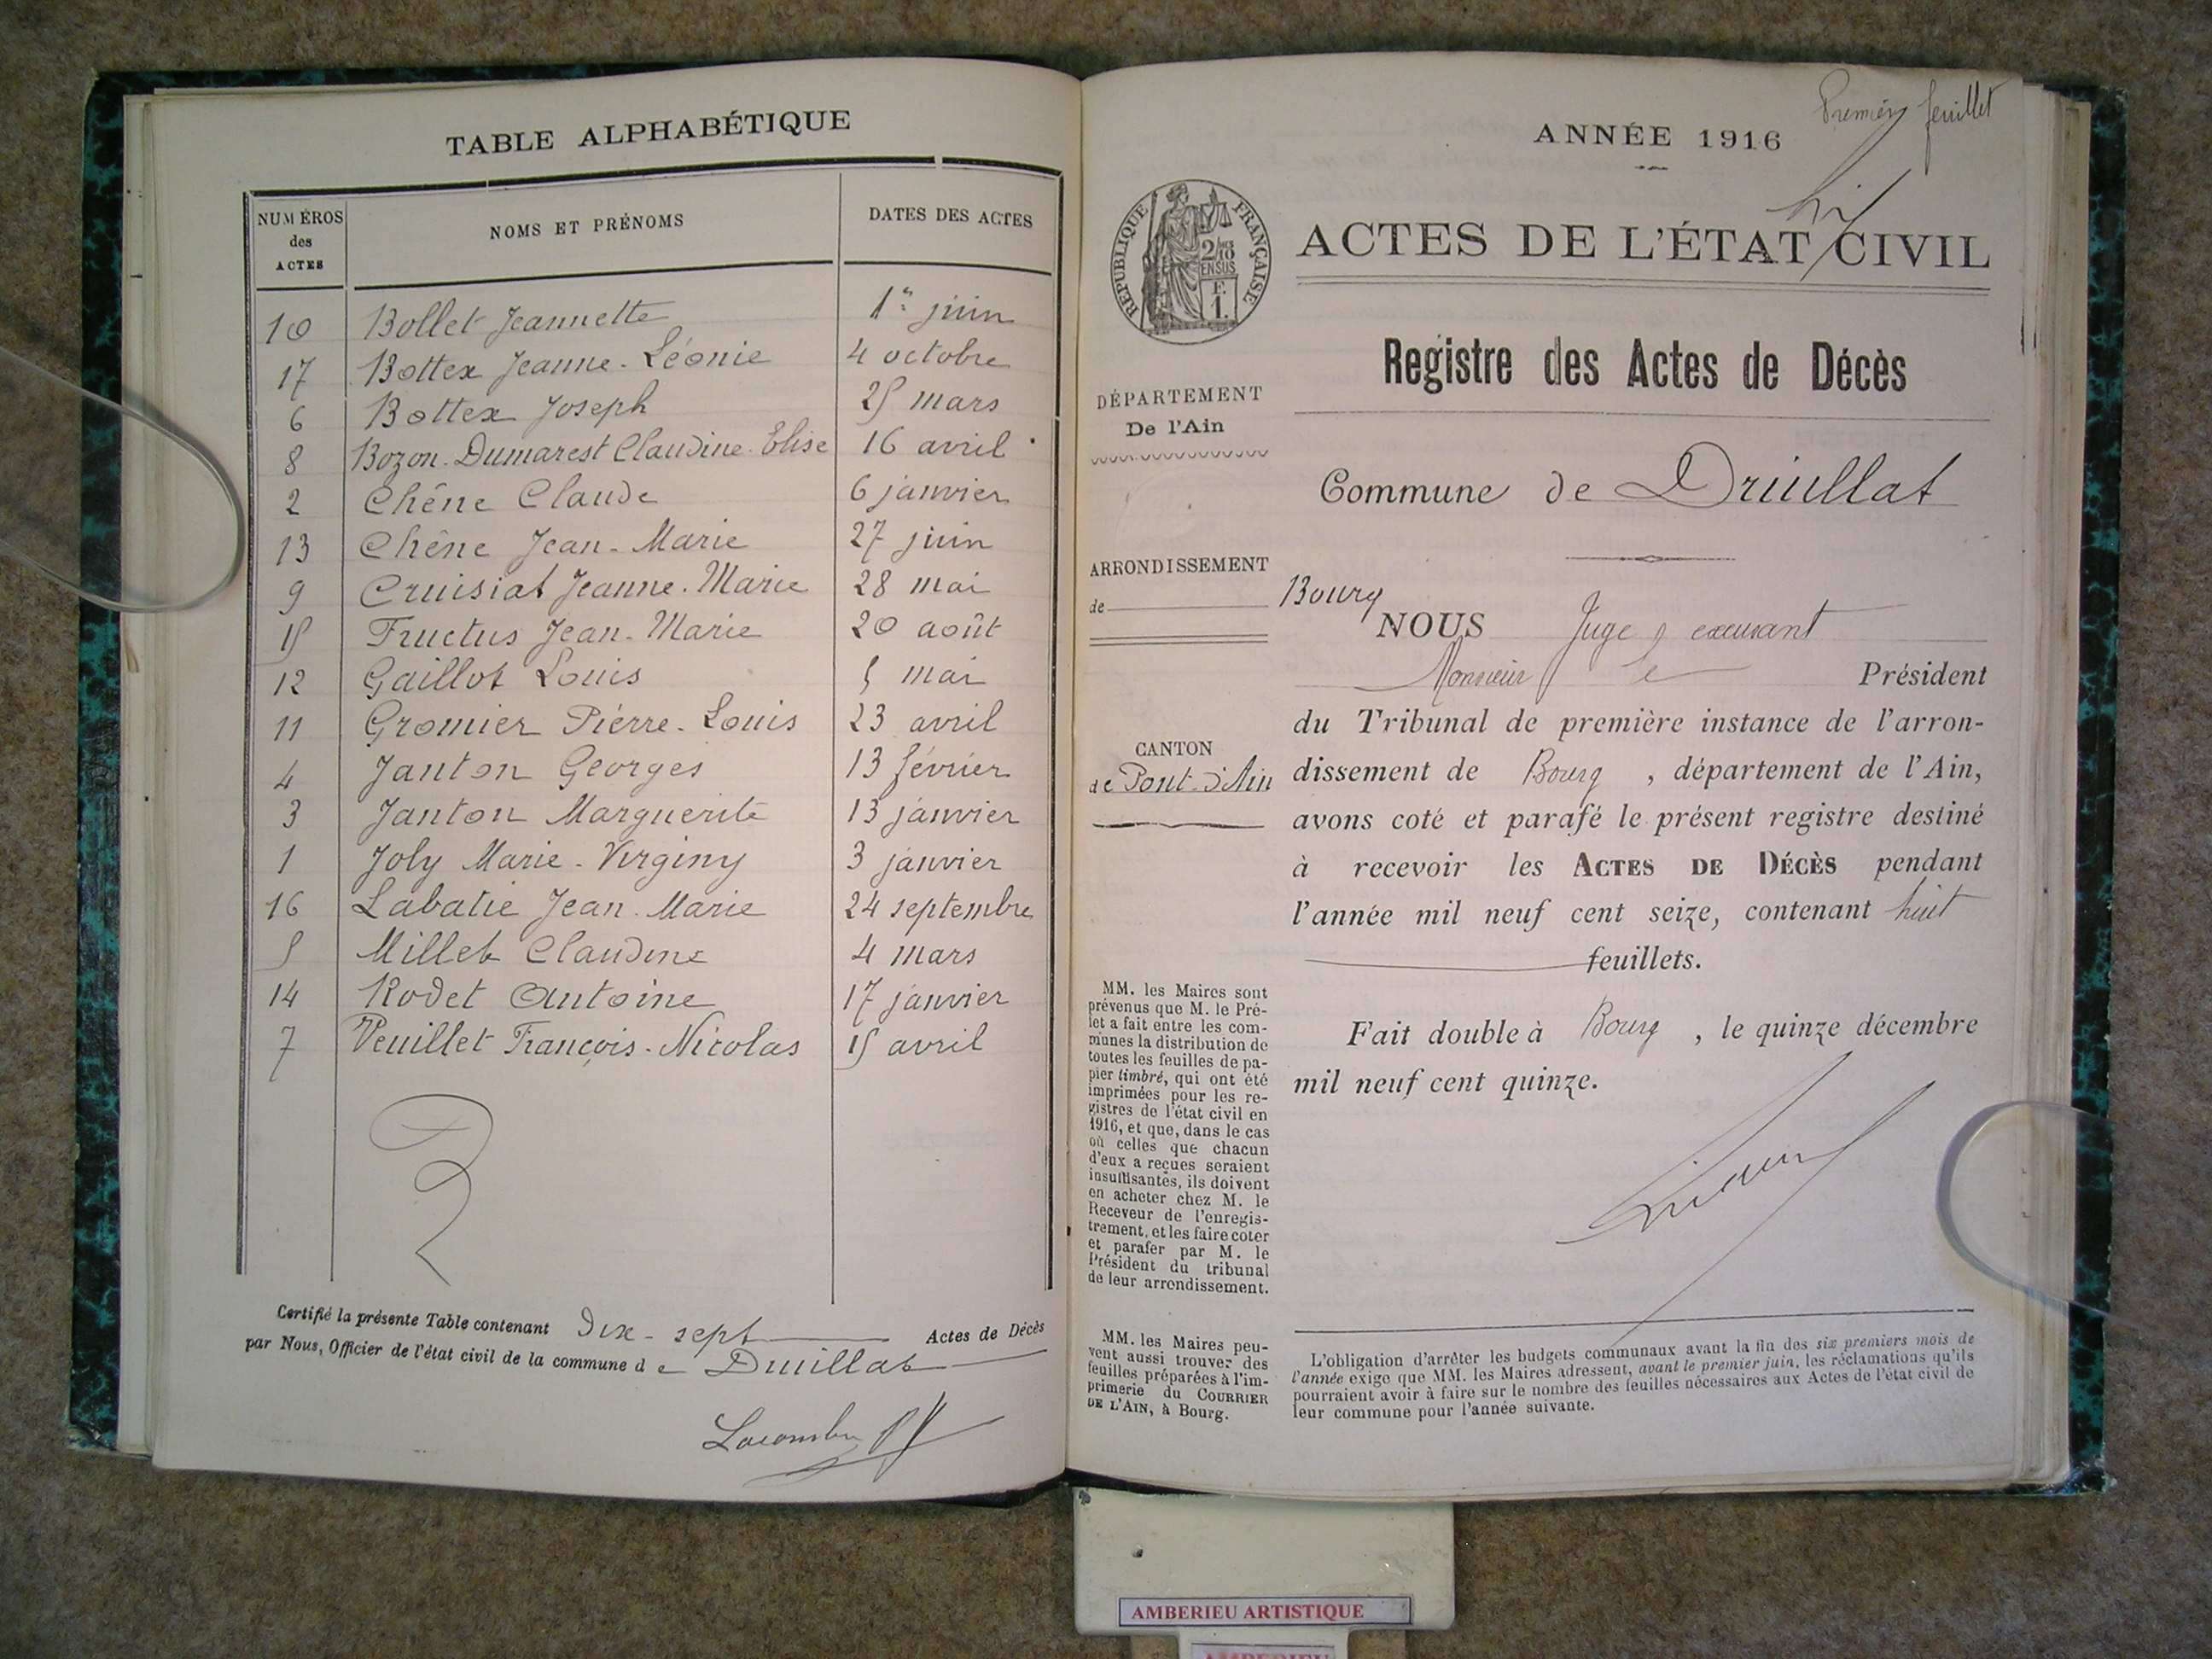 TABLE ALPHABÉTIQUE
NUMÉROS
des
ACTES
NOMS ET PRÉNOMS
DATES DES ACTES
10 Bollet Jeannette 1er juin
17 Bottex Jeanne-Léonie 4 octobre
6 Bottex Joseph 25 mars
8 Bozon-Dumarest Claudine-Elise 16 avril
2 Chêne Claude 6 janvier
13 Chêne Jean-Marie 27 juin
9 Cruisiat Jeanne-Marie 28 mai
15 Fructus Jean-Marie 20 août
12 Gaillot Louis 5 mai
11 Gromier Pierre-Louis 23 avril
4 Janton Georges 13 février
3 Janton Marguerite 13 janvier
1 Joly Marie-Virginy 3 janvier
16 Labatie Jean-Marie 24 septembre
5 Millet Claudine 4 mars
14 Rodet Antoine 17 janvier
7 Veuillet François-Nicolas 15 avril
Certifié la présente Table contenant dix-sept Actes de Décès
par Nous, Officier de l'état civil de la commune de Druillat
Lacombe
Premier feuillet
ANNÉE 1916
RÉPUBLIQUE FRANÇAISE
2/10
EN SUS
F.
1.
ACTES DE L'ÉTAT CIVIL
Registre des Actes de Décès
DÉPARTEMENT
De l'Ain
Commune de Druillat
ARRONDISSEMENT
de Bourg
NOUS Juge excusant
Monsieur le Président
CANTON
de Pont-d'Ain
du Tribunal de première instance de l'arron-
dissement de Bourg, département de l'Ain,
avons coté et parafé le présent registre destiné
à recevoir les ACTES DE DÉCÈS pendant
l'année mil neuf cent seize, contenant huit
feuillets.
Fait double à Bourg, le quinze décembre
mil neuf cent quinze.
MM. les Maires sont
prévenus que M. le Pré-
fet a fait entre les com-
munes la distribution de
toutes les feuilles de pa-
pier timbré, qui ont été
imprimées pour les re-
gistres de l'état civil en
1916, et que, dans le cas
où celles que chacun
d'eux a reçues seraient
insuffisantes, ils doivent
en acheter chez M. le
Receveur de l'enregis-
trement, et les faire coter
et parafer par M. le
Président du tribunal
de leur arrondissement.
MM. les Maires peu-
vent aussi trouver des
feuilles préparées à l'im-
primerie du COURRIER
DE L'AIN, à Bourg.
L'obligation d'arrêter les budgets communaux avant la fin des six premiers mois de
l'année exige que MM. les Maires adressent, avant le premier juin, les réclamations qu'ils
pourraient avoir à faire sur le nombre des feuilles nécessaires aux Actes de l'état civil de
leur commune pour l'année suivante.
AMBERIEU ARTISTIQUE
AMBERIEU